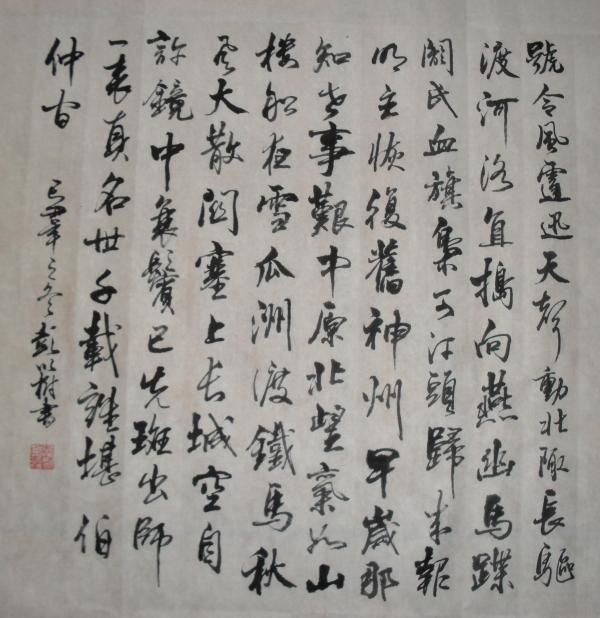 號令風霆迅天聲動北陬長驅
渡河洛直搗向燕幽馬蹀
閼氏血旗梟可汗頭歸來報
明主恢復舊神州早歲那
知世事艱中原北望氣如山
樓船夜雪瓜洲渡鐵馬秋
风大散関塞上長城空自
許鏡中衰鬢已先斑出師
一表真名世千載誰堪伯
仲間
己丑年之冬彭書